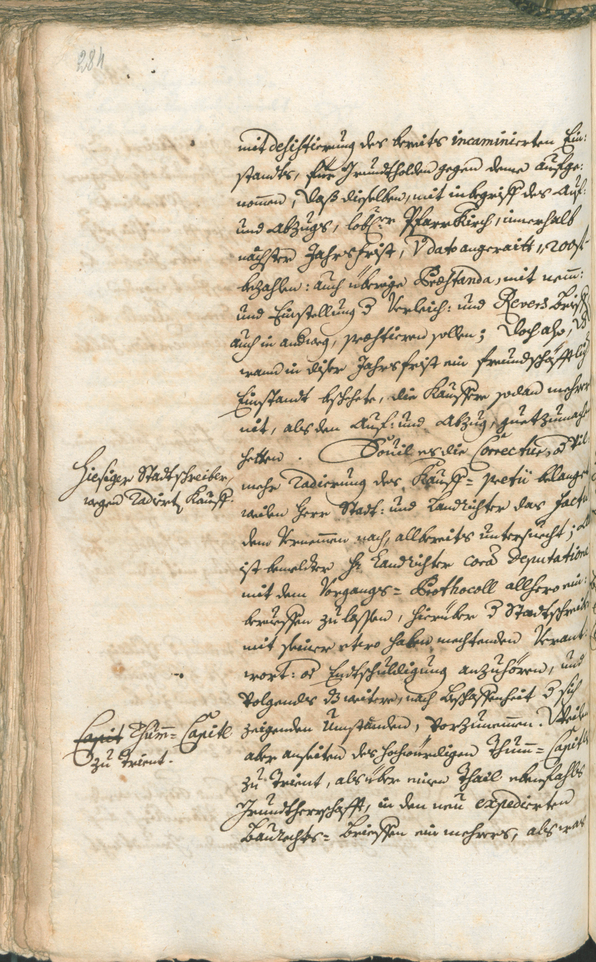 284
mit desistierung des bereits incaminierten Ein-
standts, Für Grundtholden gegen deme aufge-
nommen, daß dieselben, mit inbegriff des Auf-
und Abzugs, lobl: Pfarrkirch, innerhalb
nächster Jahrsfrist, dato angeraitt, 1200 fl
bezahlen: auch übrige Præstanda, mit nemm:
und Einstellung d Verleich: und Revers brieff
auch in andweg, præstieren sollen; Doch also, d
wann in diser Jahrsfrist ein freundschafftlich
Einstandt beschehete, die Käuffere sodan mehrers
nit, als den Auf: und Abzug, guetzumachen
hetten. Souil es die Correctur, od vil
mehr radierung des Kauff= pretii belanget
weilen Herr Stadt: und Landrichter das factum
dem Vernemmen nach, allbereits untersuecht;
ist bemeldter Hr Landrichter corã Deputatione
mit dem Vorgangs= Prothocoll allhero ein-
berueffen zu lassen, hierüber d Stadtschreiber
mit seiner etwo haben mechtenden Verant-
wort: od Endtschuldigung anzuhören, und
volgends dz weitere, nach beschaffenheit d sich
zeigenden Umständen, vorzunemmen. Weilen
aber anseiten des Hochwürdigen Thumm= Capitls
zu Trient, als über einen Thail ebenfahls
Grundtherrschafft, in den neu expedierten
Baurechts= Brieffen ein mehrers, als was
Hiesiger Stadtschreiber
wegen radiert Kauff
Capit Thum= Capitl
zu Trient.